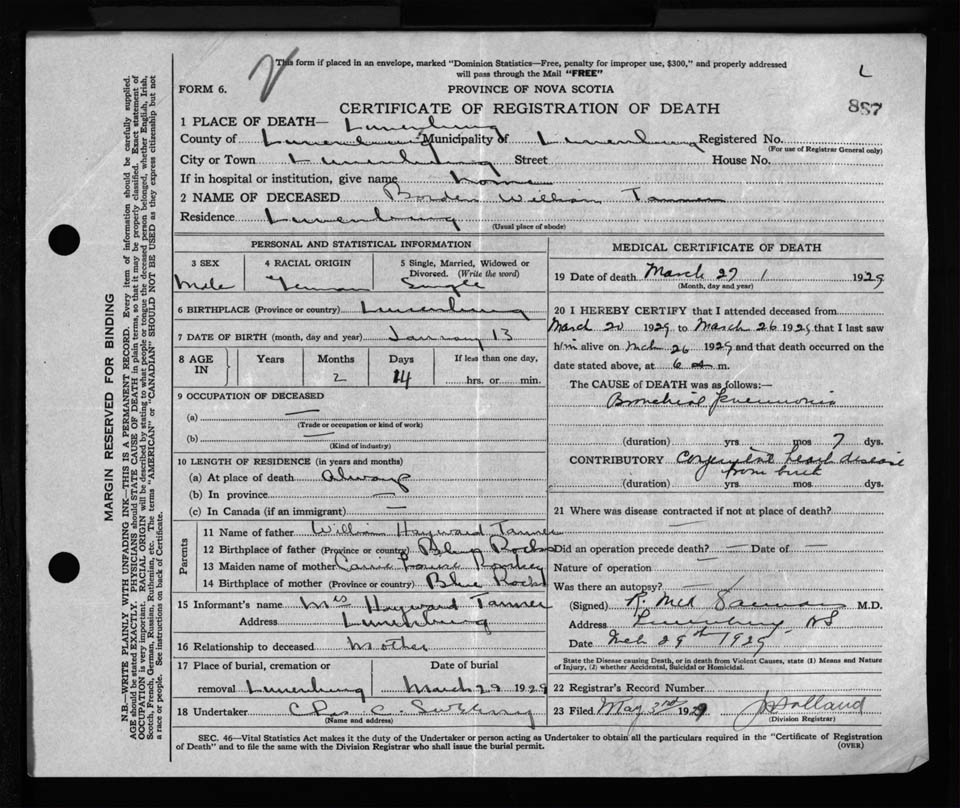 This form if placed in an envelope, marked "Dominion Statistics—Free, penalty for improper use, $300," and properly addressed
will pass through the Mail "FREE"
L
FORM 6.
PROVINCE OF NOVA SCOTIA
887
CERTIFICATE OF REGISTRATION OF DEATH
1 PLACE OF DEATH— Lunenburg
County of Lunenburg Municipality of Lunenburg Registered No.
(For use of Registrar General only)
City or Town Lunenburg Street House No.
If in hospital or institution, give name home
2 NAME OF DECEASED Borden William Tanner
Residence Lunenburg
(Usual place of abode)
MARGIN RESERVED FOR BINDING
N.B.—WRITE PLAINLY WITH UNFADING INK—THIS IS A PERMANENT RECORD. Every item of information should be carefully supplied.
AGE should be stated EXACTLY. PHYSICIANS should STATE CAUSE OF DEATH in plain terms, so that it may be properly classified. Exact statement of
OCCUPATION is very important. RACIAL ORIGIN will be described by stating to what people or tongue the deceased person belonged, whether English, Irish,
Scotch, French, German, Russian, Ruthenian, etc. The terms "AMERICAN" or "CANADIAN" SHOULD NOT BE USED as they express citizenship but not
a race or people. See instructions on back of Certificate.
PERSONAL AND STATISTICAL INFORMATION
3 SEX 4 RACIAL ORIGIN 5 Single, Married, Widowed or
Divorced. (Write the word)
Male German Single
6 BIRTHPLACE (Province or country) Lunenburg
7 DATE OF BIRTH (month, day and year) January 13
8 AGE IN Years Months Days If less than one day,
2 14 hrs. or min.
9 OCCUPATION OF DECEASED
(a) —
(Trade or occupation or kind of work)
(b) —
(Kind of industry)
10 LENGTH OF RESIDENCE (in years and months)
(a) At place of death Always
(b) In province —
(c) In Canada (if an immigrant) —
Parents
11 Name of father William Hayward Tanner
12 Birthplace of father (Province or country) Blue Rocks
13 Maiden name of mother Carrie
14 Birthplace of mother (Province or country) Blue Rocks
15 Informant's name Mrs Hayward Tanner
Address Lunenburg
16 Relationship to deceased Mother
17 Place of burial, cremation or Date of burial
removal Lunenburg March 29 1929
18 Undertaker Chas C.
(Name and address)
MEDICAL CERTIFICATE OF DEATH
19 Date of death March 27 1929
(Month, day and year)
20 I HEREBY CERTIFY that I attended deceased from
March 20 1929 to March 26 1929 that I last saw
him alive on Mch 26 1929 and that death occurred on the
date stated above, at 6 a m.
The CAUSE of DEATH was as follows:—
Bronchial Pneumonia
(duration) yrs mos 7 dys.
CONTRIBUTORY Congenital heart disease
from birth
(duration) yrs. mos. dys.
21 Where was disease contracted if not at place of death?
Did an operation precede death? — Date of —
Nature of operation —
Was there an autopsy? —
(Signed) R. McK M.D.
Address Lunenburg NS
Date Mch 29th 1929
State the Disease causing Death, or in death from Violent Causes, state (1) Means and Nature
of Injury, (2) whether Accidental, Suicidal or Homicidal.
22 Registrar's Record Number
23 Filed May 3rd 1929 Holland
(Division Registrar)
SEC. 46—Vital Statistics Act makes it the duty of the Undertaker or person acting as Undertaker to obtain all the particulars required in the "Certificate of Registration
of Death" and to file the same with the Division Registrar who shall issue the burial permit.
(OVER)